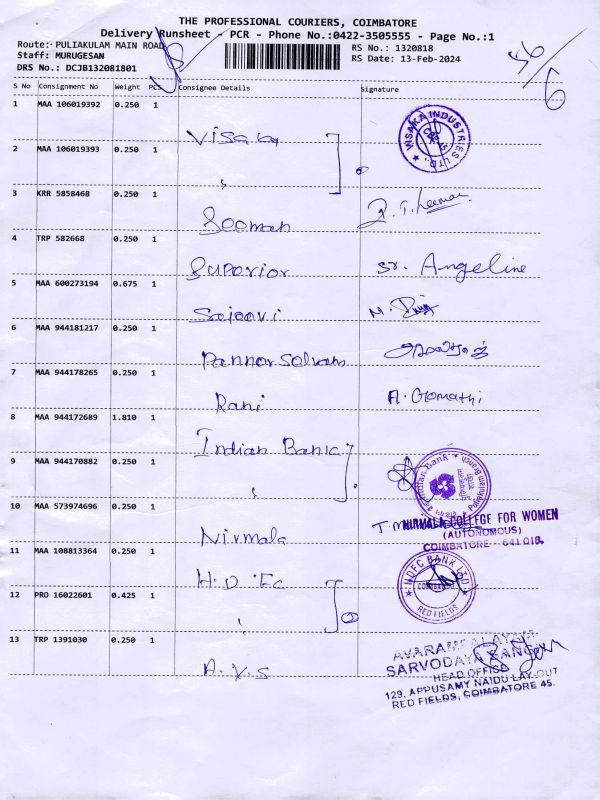 THE PROFESSIONAL COURIERS, COIMBATORE
Delivery Runsheet - PCR - Phone No.:0422-3505555 - Page No.:1
Route: PULIAKULAM MAIN ROAD
RS No.: 1320818
Staff: MURUGESAN
RS Date: 13-Feb-2024
DRS No.: DCJB132081801
56/6
S No Consignment No Weight PCS Consignee Details Signature
1 MAA 106019392 0.250 1 Visaka
VISAKA INDUSTRIES LTD.
2 MAA 106019393 0.250 1 "
3 KRR 5858468 0.250 1 Seeman
4 TRP 582668 0.250 1 Superior Sr. Angeline
5 MAA 600273194 0.675 1 M.
6 MAA 944181217 0.250 1 Pannerselvam
7 MAA 944178265 0.250 1 Rani A. Gomathi
8 MAA 944172689 1.810 1 Indian Bank
9 MAA 944170882 0.250 1 "
Indian Bank
10 MAA 573974696 0.250 1 Nirmala
NIRMALA COLLEGE FOR WOMEN
(AUTONOMOUS)
COIMBATORE - 641 018.
11 MAA 108813364 0.250 1 H.D.Fc
HDFC BANK LTD
COIMBATORE
RED FIELDS
12 PRO 16022601 0.425 1 "
13 TRP 1391030 0.250 1 A.V.S
AVARAMPALAYAM
SARVODAYA SANGH
HEAD OFFICE
129, APPUSAMY NAIDU LAY-OUT
RED FIELDS, COIMBATORE 45.